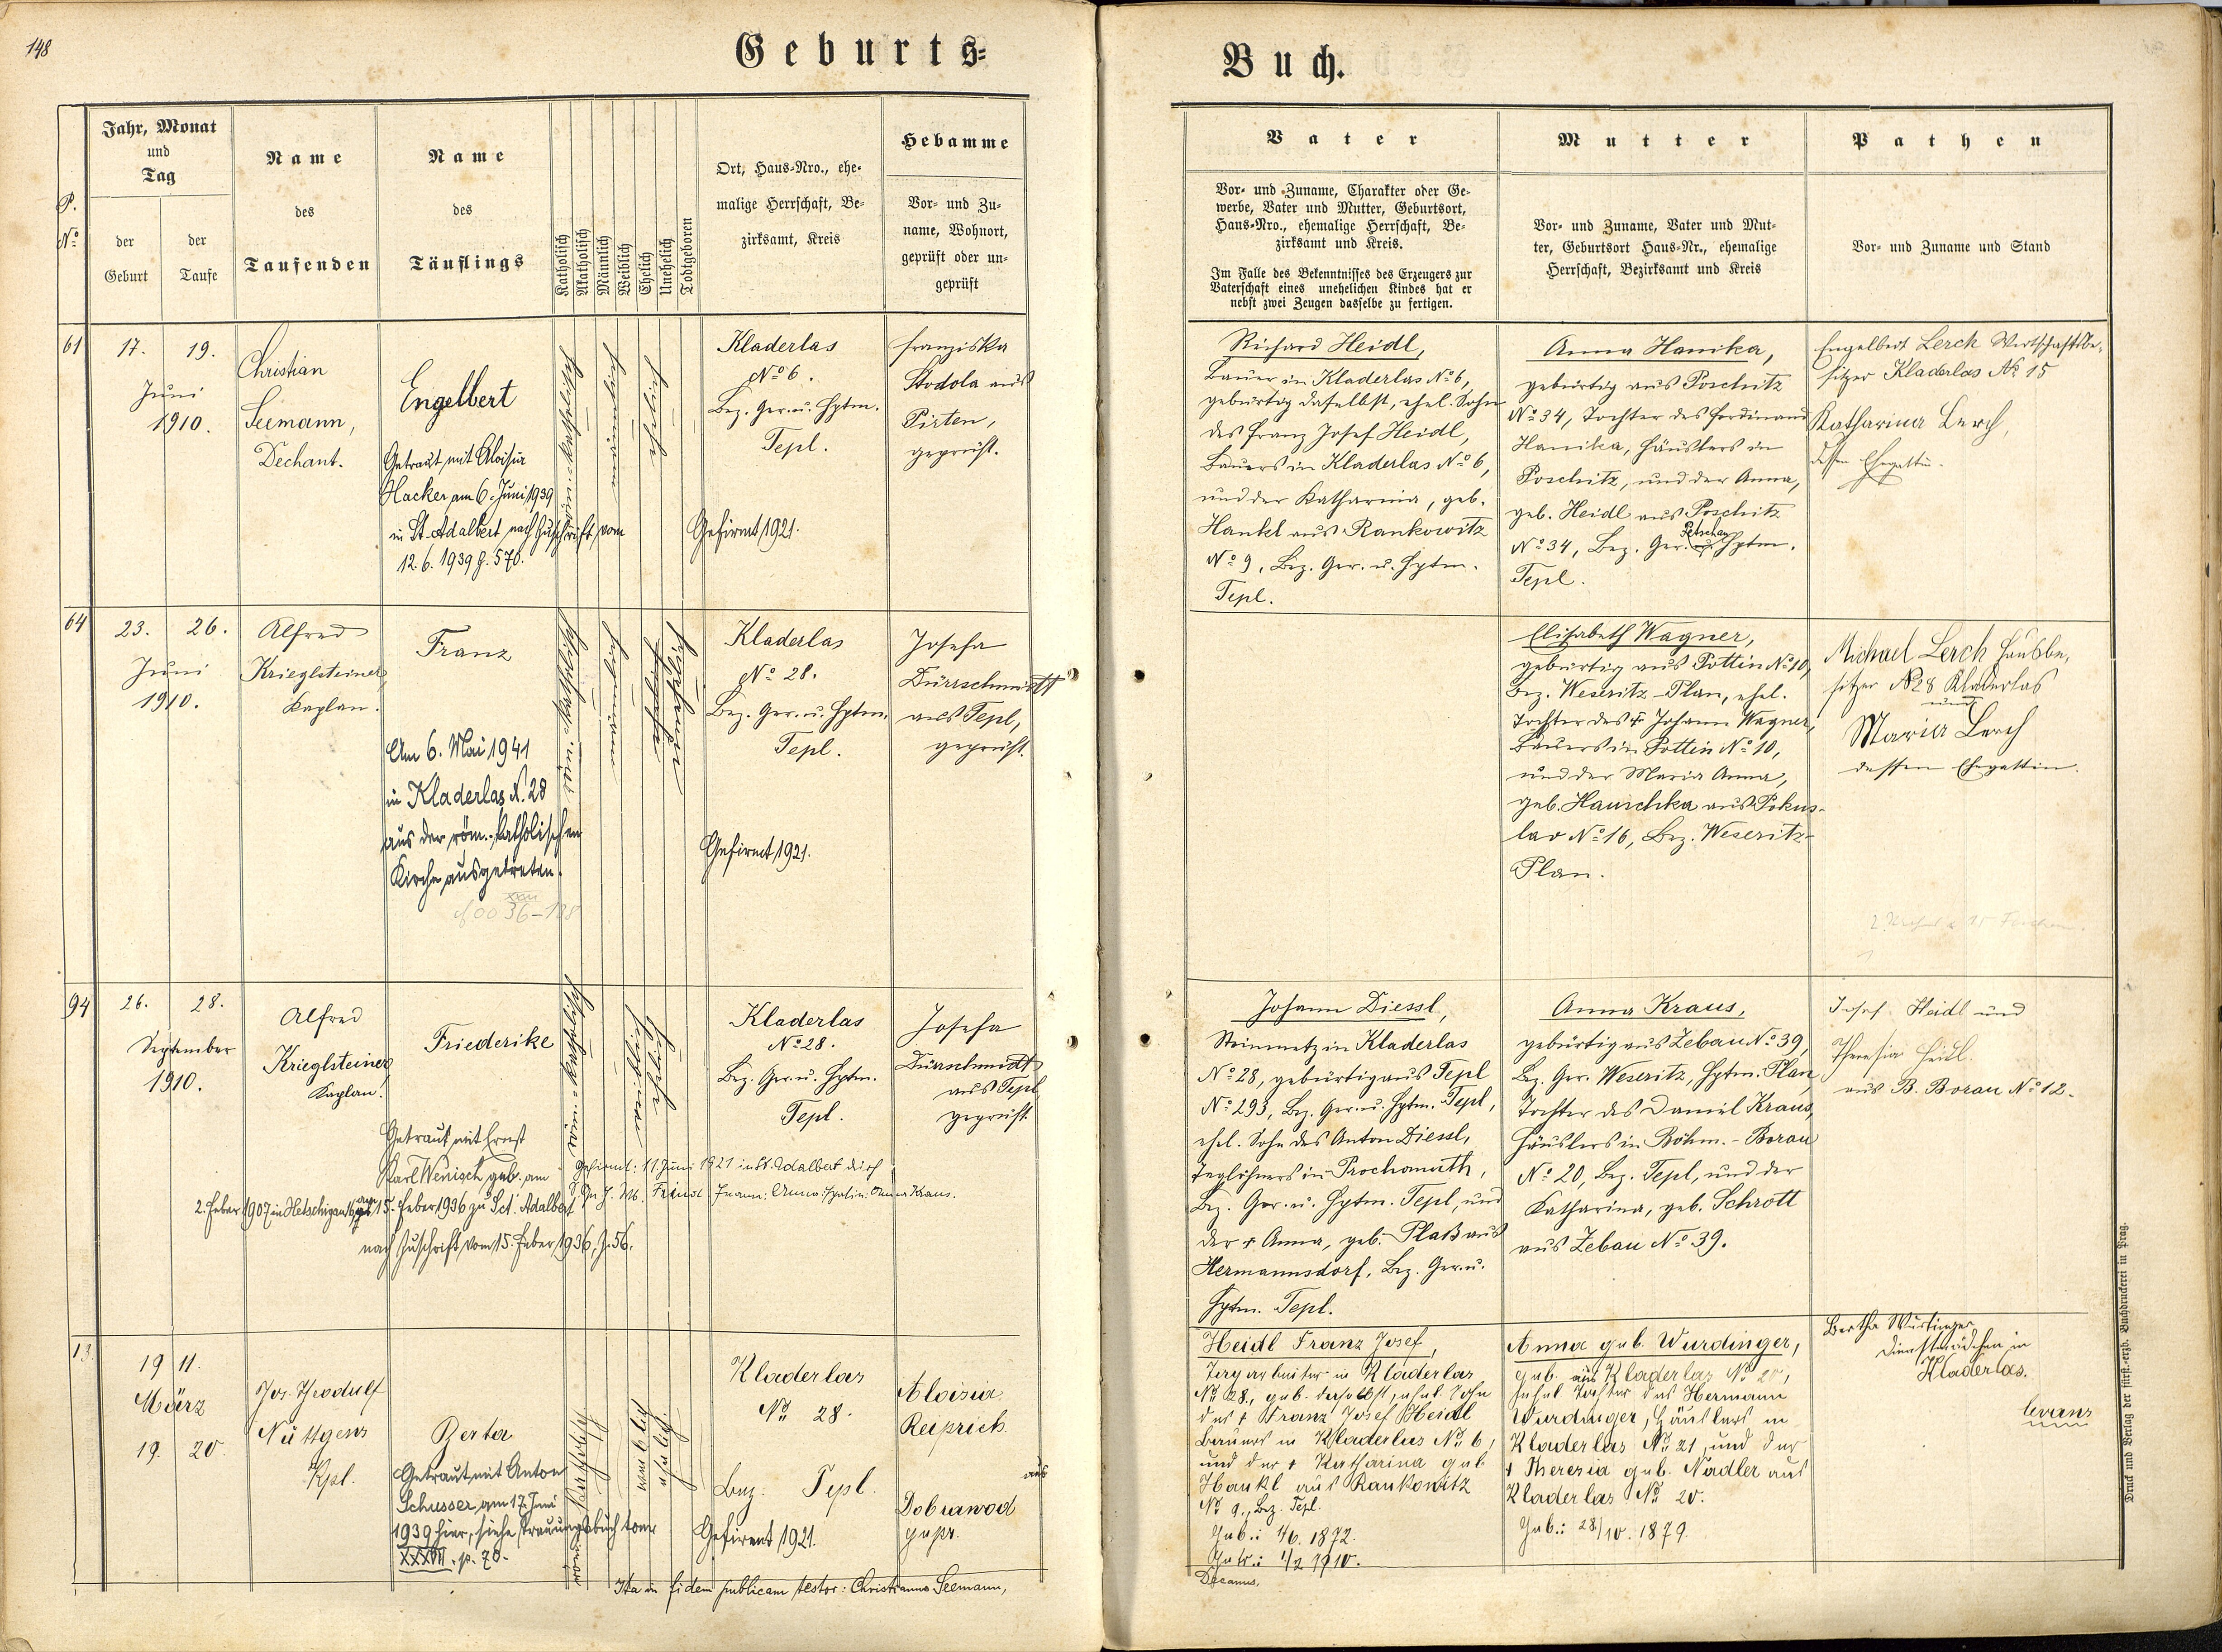 148
Geburts=
Buch.
P. No
Jahr, Monat
und
Tag
der
Geburt
der
Taufe
Name
des
Taufenden
Name
des
Täuflings
Katholisch
Akatholisch
Männlich
Weiblich
Ehelich
Unehelich
Todtgeboren
Ort, Haus-Nro., ehe-
malige Herrschaft, Be-
zirksamt, Kreis
Hebamme
Vor- und Zu-
name, Wohnort,
geprüft oder un-
geprüft
Vater
Vor- und Zuname, Charakter oder Ge-
werbe, Vater und Mutter, Geburtsort,
Haus-Nro., ehemalige Herrschaft, Be-
zirksamt und Kreis.
Im Falle des Bekenntnisses des Erzeugers zur
Vaterschaft eines unehelichen Kindes hat er
nebst zwei Zeugen dasselbe zu fertigen.
Mutter
Vor- und Zuname, Vater und Mut-
ter, Geburtsort Haus-Nr., ehemalige
Herrschaft, Bezirksamt und Kreis
Pathen
Vor- und Zuname und Stand
61
17.
19.
Juni
1910.
Christian
Seemann,
Dechant.
Engelbert
Getraut mit Aloisia
Hacker am 6. Juni 1939
in St. Adalbert nach Zuschrift vom
12. 6. 1939 Z. 570.
Kladerlas
No 6.
Bez. Ger. u. Hptm.
Tepl.
Gefirmt 1921.
Franziska
Stodola aus
Pirten,
geprüft.
Richard Heidl,
Bauer in Kladerlas No 6,
gebürtig daselbst, ehel. Sohn
des Franz Josef Heidl,
Bauers in Kladerlas No 6,
und der Katharina, geb.
Hankl aus Rankowitz
No 9, Bez. Ger. u. Hptm.
Tepl.
Anna Hanika,
gebürtig aus Poschitz
No 34, Tochter des Ferdinand
Hanika, Häuslers in
Poschitz, und der Anna,
geb. Heidl aus Poschitz
No 34, Bez. Ger. Petschau Hptm.
Tepl.
Engelbert Lerch Wirtschaftsbe-
sitzer Kladerlas No 15
Katharina Lerch,
dessen Ehegattin.
64
23.
26.
Juni
1910.
Alfred
Krieglsteiner,
Kaplan.
Franz
Am 6. Mai 1941
in Kladerlas N. 28
aus der röm.-katholischen
Kirche ausgetreten.
Kladerlas
No 28.
Bez. Ger. u. Hptm.
Tepl.
Gefirmt 1921.
Josefa
Dürrschmidt
aus Tepl,
geprüft.
Elisabeth Wagner,
gebürtig aus Pottin No 10,
Bez. Weseritz-Plan, ehel.
Tochter des † Johann Wagner,
Bauers in Pottin No 10,
und der Maria Anna,
geb. Hauschka aus Pokus-
lav No 16, Bez. Weseritz-
Plan.
Michael Lerch Hausbe-
sitzer No 28 Kladerlas
und
Maria Lerch
dessen Ehegattin.
94
26.
28.
September
1910.
Alfred
Krieglsteiner,
Kaplan.
Friederike
Getraut mit Ernst
Karl Wenisch geb. am
2. Feber 1907 in
am 15. Feber 1936 zu Sct. Adalbert
nach Zuschrift vom 15. Feber 1936, Z. 56.
Gefirmt: 11. Juni 1921 in St. Adalbert durch
Anna Kraus.
Kladerlas
No 28.
Bez. Ger. u. Hptm.
Tepl.
Josefa
Dürrschmidt
aus Tepl
geprüft.
Johann Diessl,
Steinmetz in Kladerlas
No 28, gebürtig aus Tepl
No 293, Bez. Ger. u. Hptm. Tepl,
ehel. Sohn des Anton Diessl,
Taglöhners in Prochomuth,
Bez. Ger. u. Hptm. Tepl, und
der † Anna, geb. Plaß aus
Hermannsdorf, Bez. Ger. u.
Hptm. Tepl.
Anna Kraus,
gebürtig aus Zebau No 39,
Bez. Ger. Weseritz, Hptm. Plan,
Tochter des Daniel Kraus,
Häuslers in Böhm.-Borau
No 20, Bez. Tepl, und der
Katharina, geb. Schrott
aus Zebau No 39.
Josef Heidl und
Theresia Heidl
aus B. Borau No 12.
13
19 11.
März
19. 20.
Jos. Theodulf
Nüttgens
Kpl.
Berta
Getraut mit Anton
Schusser am 17. Juni
1939 hier, siehe Trauungsbuch tom
XXXVII. p. 70.
weiblich
ehelich.
Kladerlas
No 28.
Bez. Tepl.
Gefirmt 1921.
Aloisia
Reiprich
aus
Dobrawod
gepr.
Heidl Franz Josef,
Tagarbeiter in Kladerlas
No 28., geb. daselbst, ehel. Sohn
des † Franz Josef Heidl
Bauers in Kladerlas No 6,
und der † Katharina geb.
Hankl aus Rankowitz
No 9., Bez. Tepl.
Geb.: 4/6. 1872.
Getr.: 1/2 1910.
Anna geb. Wurdinger,
geb. aus Kladerlas No 20,
ehel. Tochter des Hermann
Wurdinger, Häuslers in
Kladerlas No 21, und der
† Theresia geb. Nadler aus
Kladerlas No 20.
Geb.: 28/10. 1879.
Bertha
Dienstmädchen in
Kladerlas.
Ita in fidem publicam testor: Christianus Seemann,
Decanus.
Druck und Verlag der fürst.-erzb. Buchdruckerei in Prag.